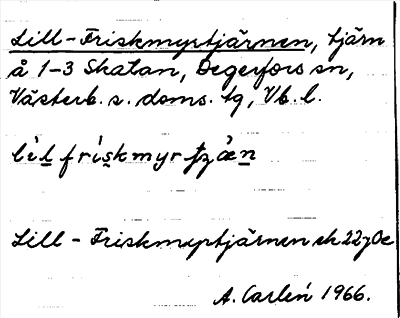 Lill-Friskmyrtjärnen, tjärn
å 1-3 Skatan, Degerfors sn,
Västerb. s. doms. tg, Vb. l.
Lill-Friskmyrtjärnen ek 22 7 Oc
A. Carlén 1966.